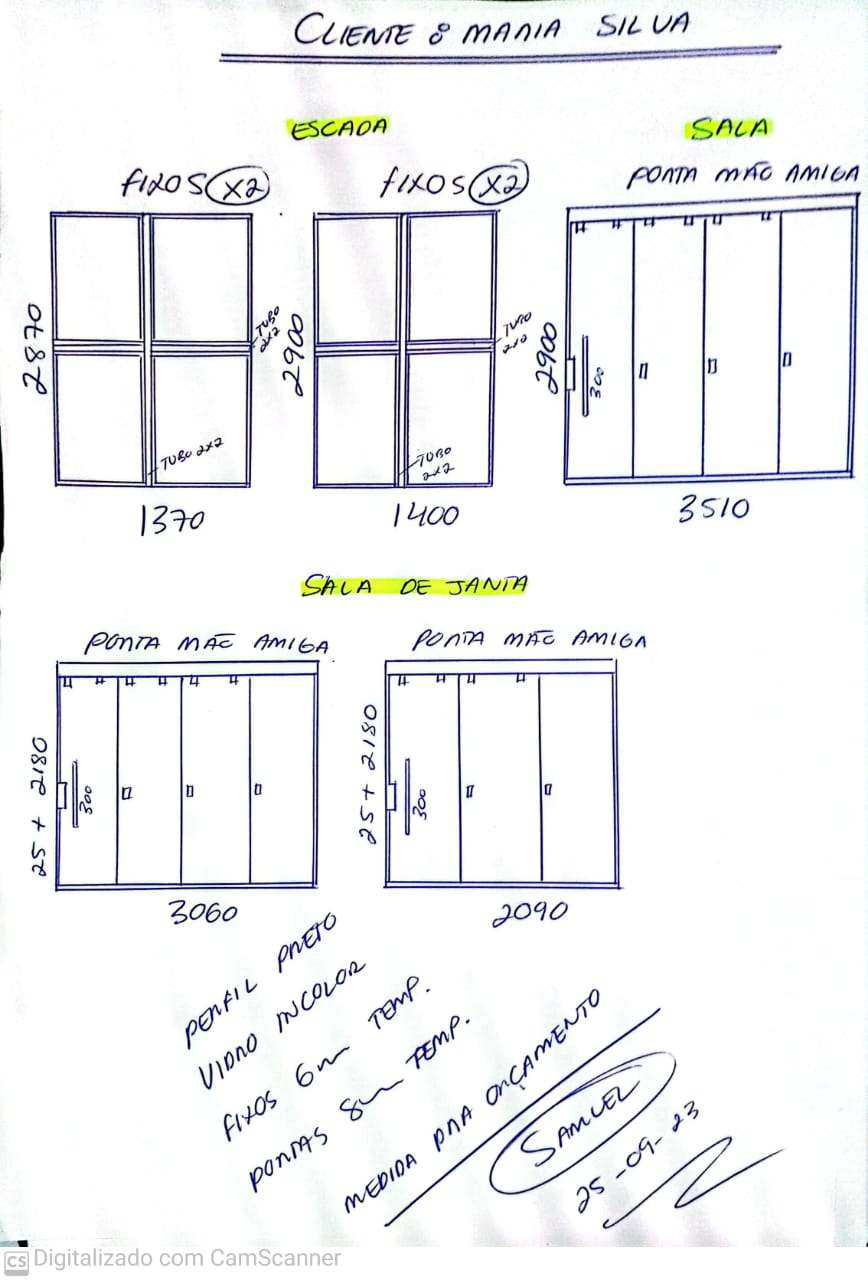 CLIENTE: MARIA SILVA
ESCADA
SALA
FIXOS X2
FIXOS X2
PORTA MÃO AMIGA
2870
TUBO 2x2
TUBO 2x2
1370
2900
TUBO 2x2
TUBO 2x2
1400
2900
300
3510
SALA DE JANTA
PORTA MÃO AMIGA
PORTA MÃO AMIGA
25 + 2180
300
3060
25 + 2180
300
2090
PERFIL PRETO
VIDRO INCOLOR
FIXOS 6m TEMP.
PORTAS 8m TEMP.
MEDIDA PRA ORÇAMENTO
SAMUEL
25-09-23
CS Digitalizado com CamScanner